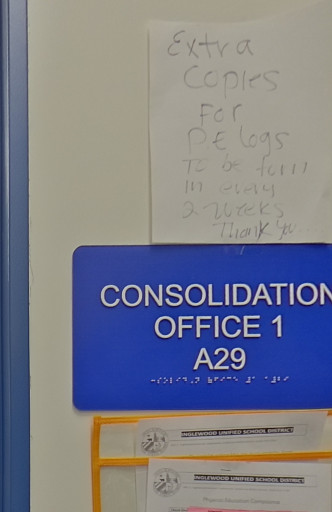 Extra
Copies
For
PE logs
To be turn
in every
2 weeks
Thank you
CONSOLIDATION
OFFICE 1
A29
INGLEWOOD UNIFIED SCHOOL DISTRICT
INGLEWOOD UNIFIED SCHOOL DISTRICT
Physical Education